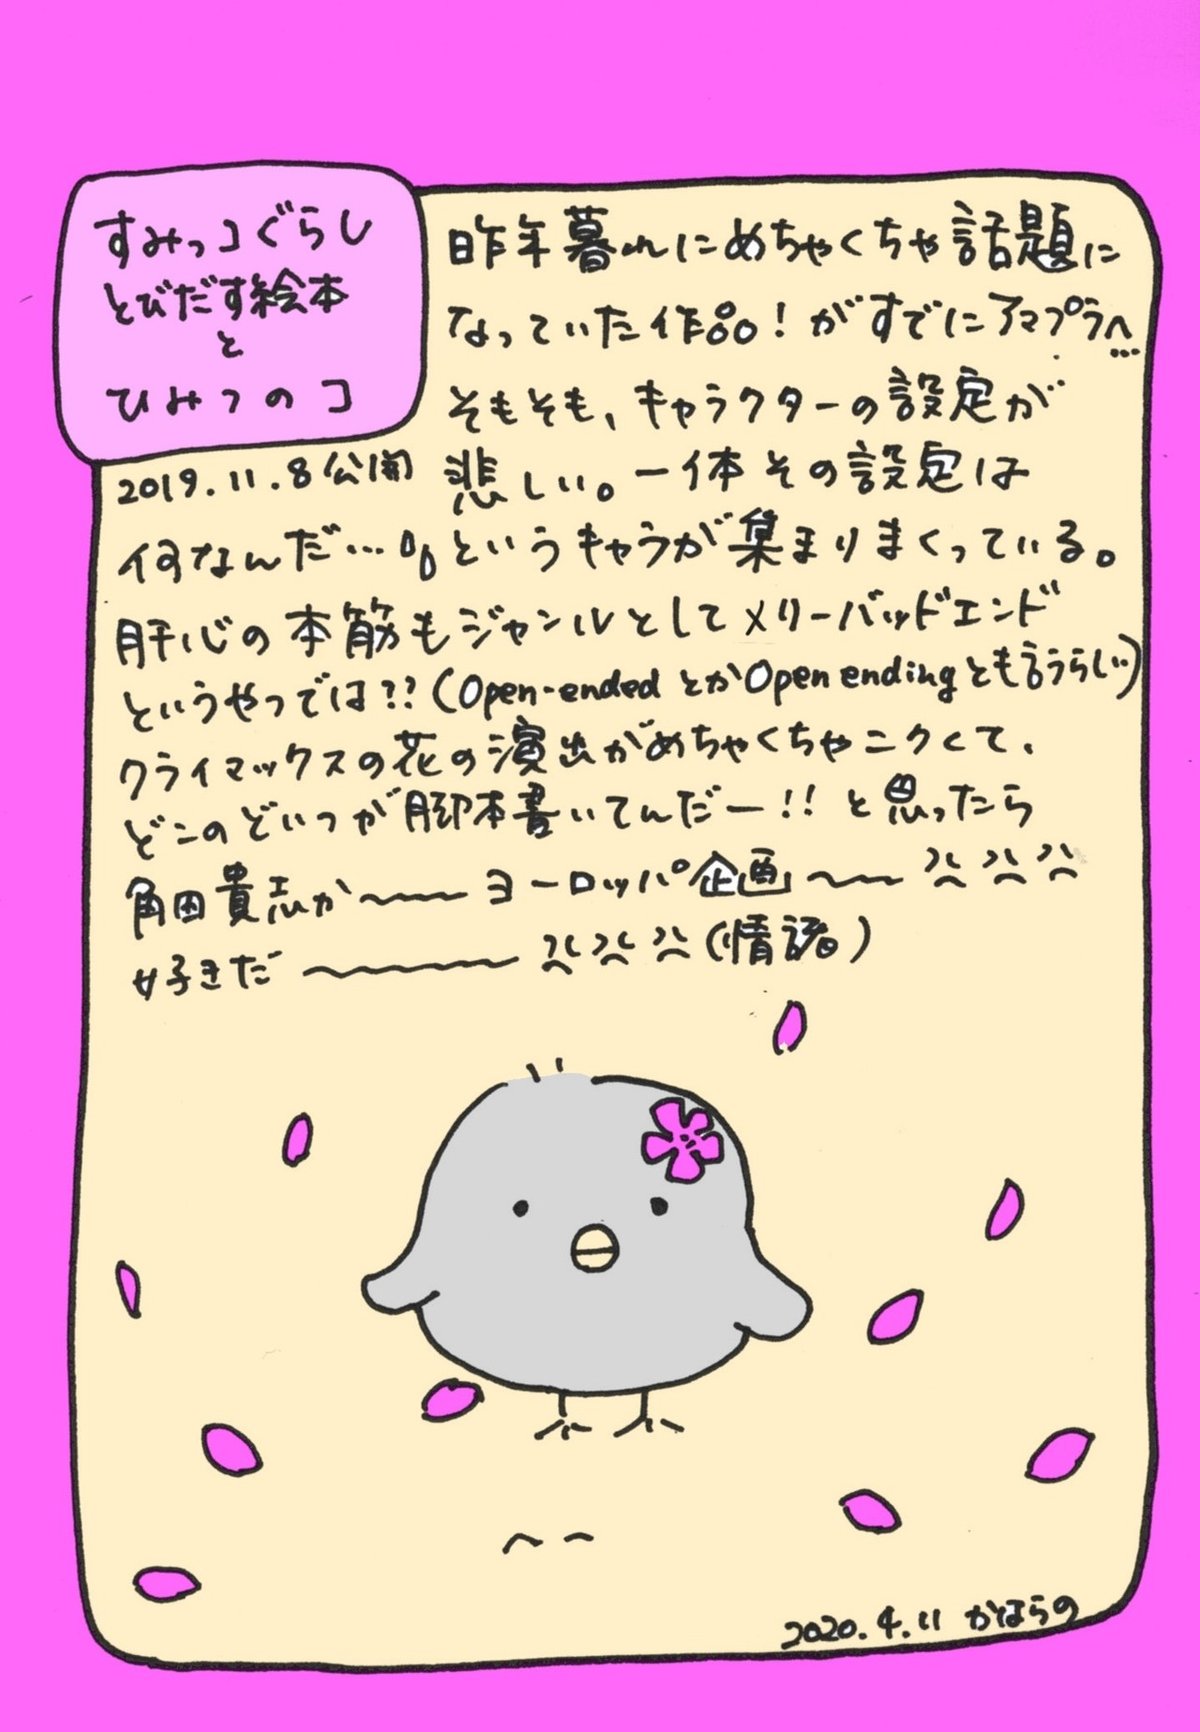 すみっコぐらし
とびだす絵本
と
ひみつのコ
2019.11.8公開
昨年暮れにめちゃくちゃ話題に
なっていた作品！がすでにアマプラへ…
そもそも、キャラクターの設定が
悲しい。一体その設定は
何なんだ…というキャラが集まりまくっている。
肝心の本筋もジャンルとしてメリーバッドエンド
というやつでは??(Open-endedとかOpen endingとも言うらしい)
クライマックスの花の演出がめちゃくちゃニクくて、
どこのどいつが脚本書いてんだー!!と思ったら
角田貴志か〜〜〜ヨーロッパ企画〜〜
好きだ〜〜〜〜〜(情緒)
2020.4.11 かはらの